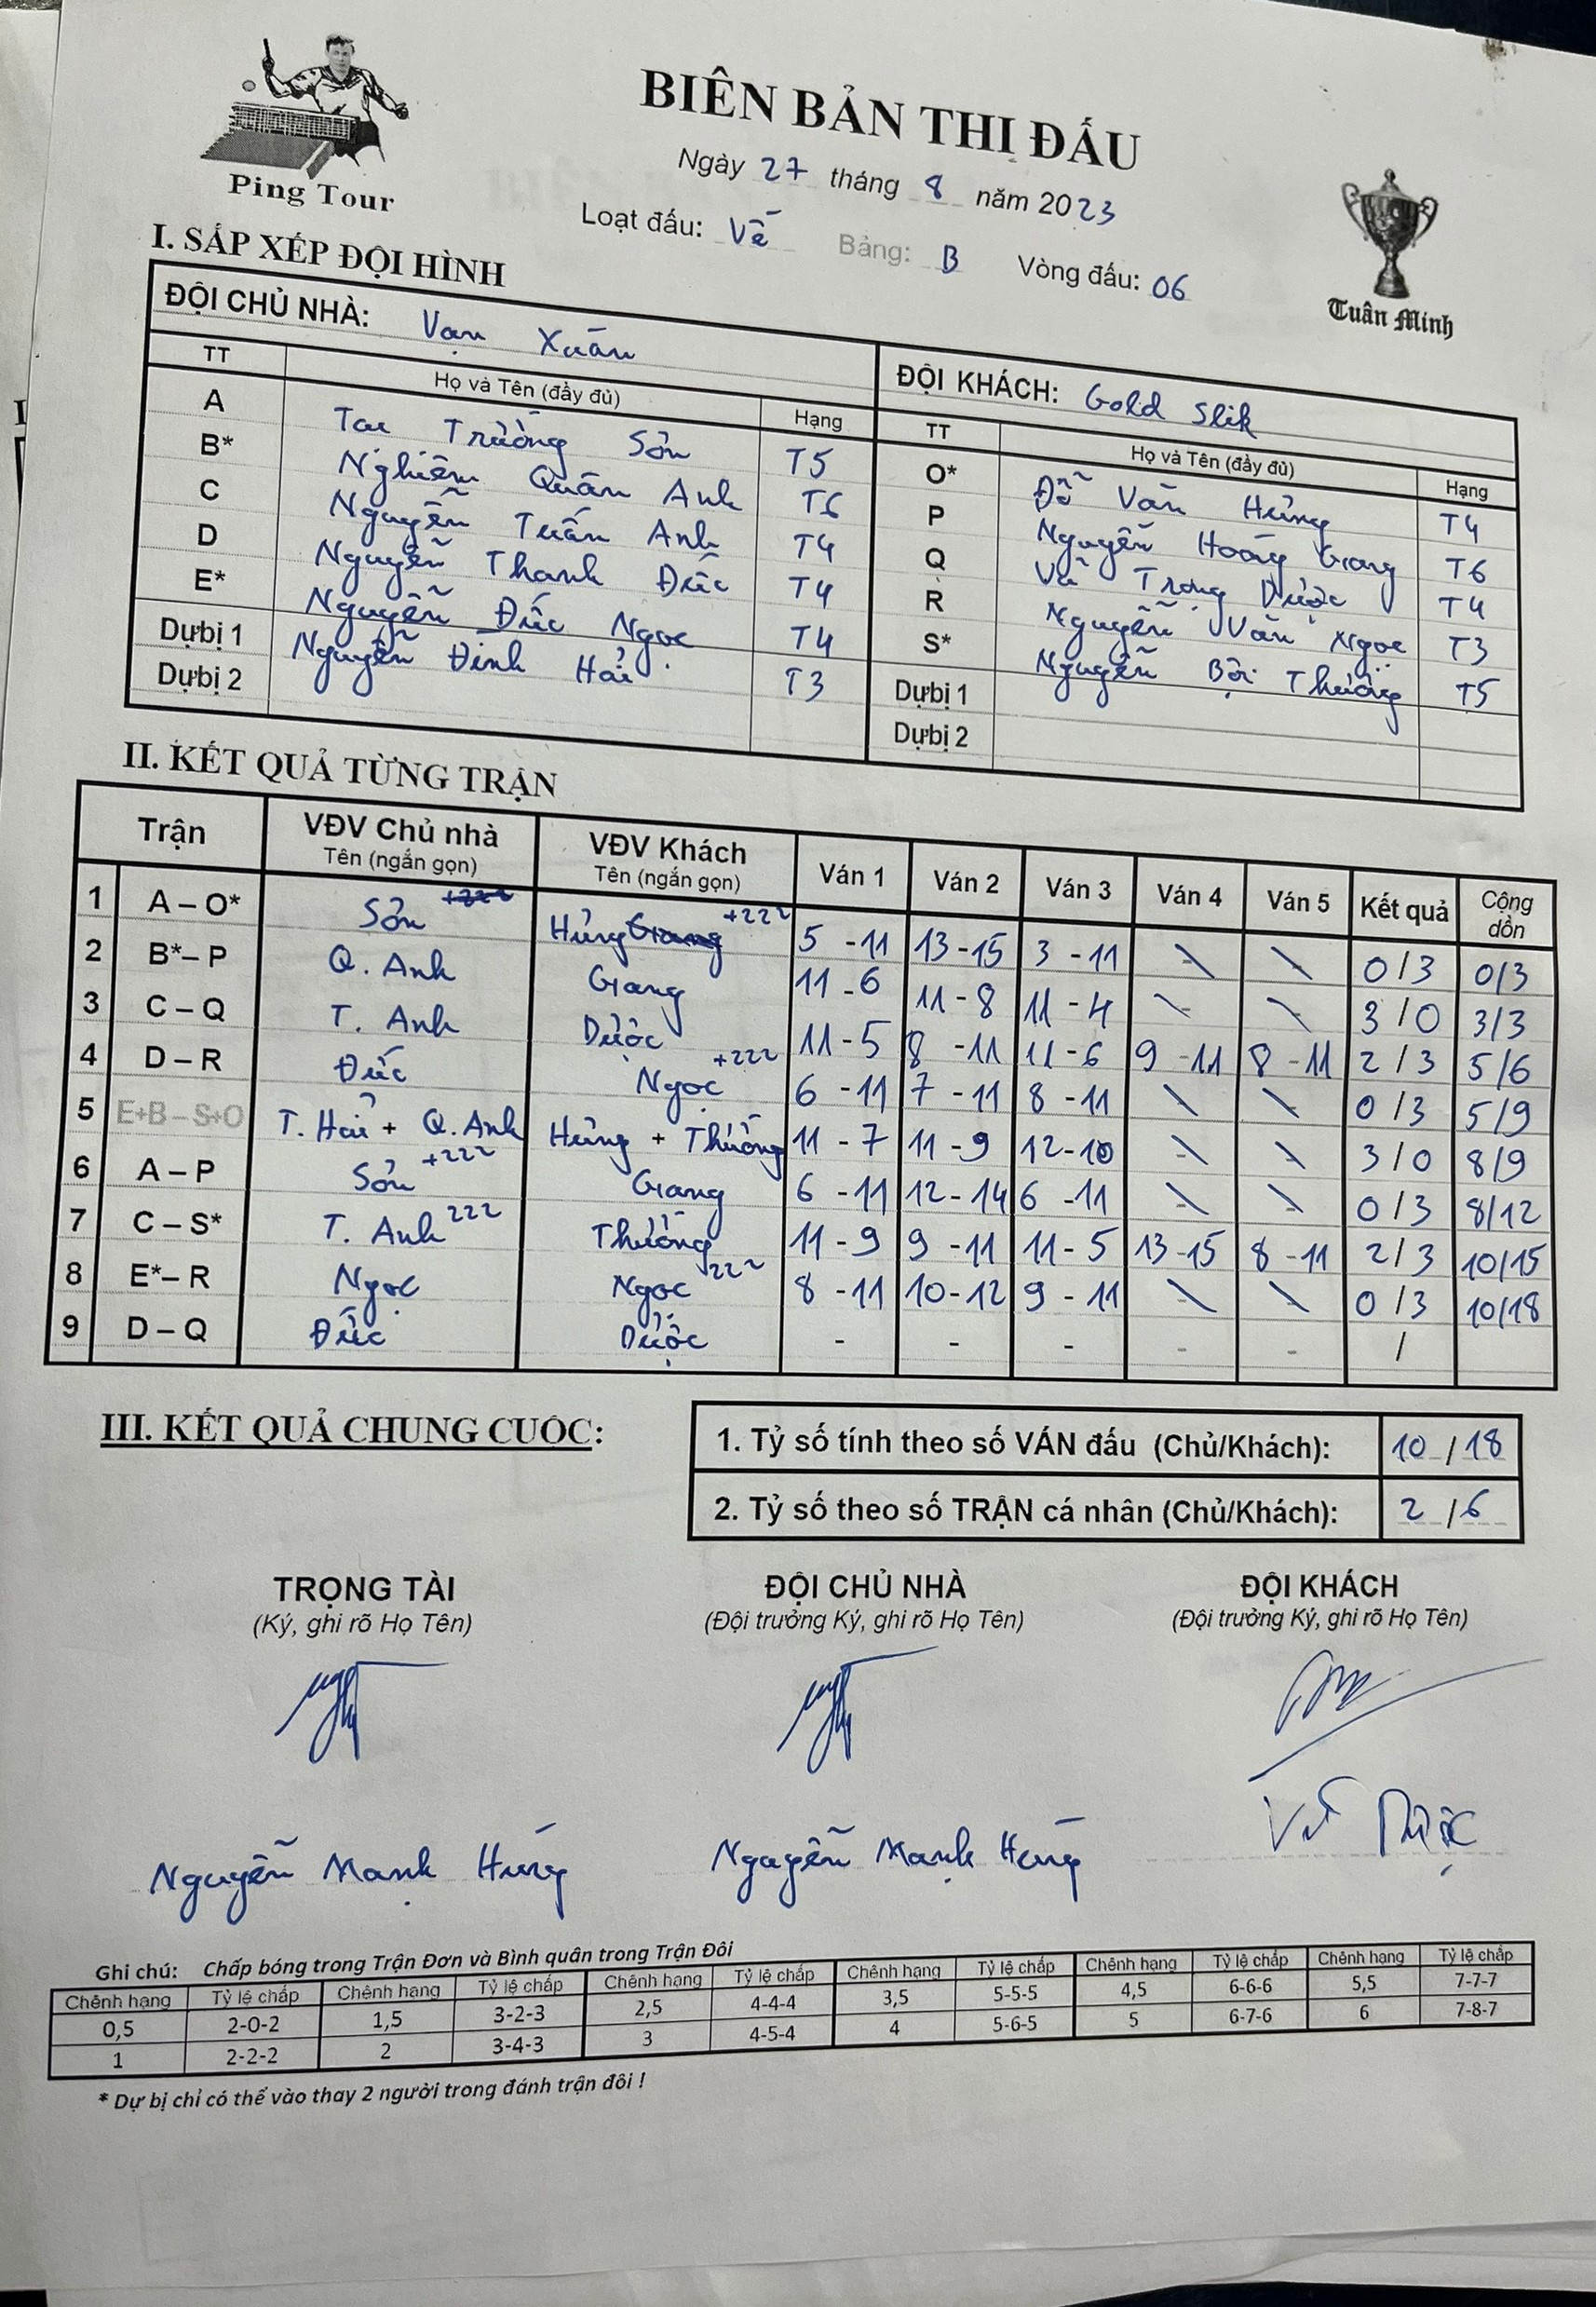 BIÊN BẢN THI ĐẤU
Ping Tour
Ngày 27 tháng 8 năm 2023
Loạt đấu: Về Bảng: B Vòng đấu: 06
Tuân Minh
I. SẮP XẾP ĐỘI HÌNH
ĐỘI CHỦ NHÀ: Vạn Xuân
ĐỘI KHÁCH: Gold Slik
TT Họ và Tên (đầy đủ) Hạng
A Tạ Trường Sơn T5
B* Nghiêm Quân Anh T6
C Nguyễn Tuấn Anh T4
D Nguyễn Thanh Đức T4
E* Nguyễn Đức Ngọc T4
Dự bị 1 Nguyễn Đình Hải T3
Dự bị 2
TT Họ và Tên (đầy đủ) Hạng
O* Đỗ Văn Hưng T4
P Nguyễn Hoàng Giang T6
Q Vũ Trọng Dược T4
R Nguyễn Văn Ngọc T3
S* Nguyễn Bội Thưởng T5
Dự bị 1
Dự bị 2
II. KẾT QUẢ TỪNG TRẬN
Trận VĐV Chủ nhà Tên (ngắn gọn) VĐV Khách Tên (ngắn gọn) Ván 1 Ván 2 Ván 3 Ván 4 Ván 5 Kết quả Cộng dồn
1 A – O* Sơn Hưng +222 5 - 11 13 - 15 3 - 11 \ \ 0 / 3 0/3
2 B* – P Q. Anh Giang 11 - 6 11 - 8 11 - 4 \ \ 3 / 0 3/3
3 C – Q T. Anh Dược 11 - 5 8 - 11 11 - 6 9 - 11 8 - 11 2 / 3 5/6
4 D – R Đức +222 Ngọc 6 - 11 7 - 11 8 - 11 \ \ 0 / 3 5/9
5 E+B – S+O T. Hải + Q. Anh Hưng + Thưởng 11 - 7 11 - 9 12 - 10 \ \ 3 / 0 8/9
6 A – P Sơn +222 Giang 6 - 11 12 - 14 6 - 11 \ \ 0 / 3 8/12
7 C – S* T. Anh 222 Thưởng 11 - 9 9 - 11 11 - 5 13 - 15 8 - 11 2 / 3 10/15
8 E* – R Ngọc Ngọc 222 8 - 11 10 - 12 9 - 11 \ \ 0 / 3 10/18
9 D – Q Đức Dược - - - - - /
III. KẾT QUẢ CHUNG CUỘC:
1. Tỷ số tính theo số VÁN đấu (Chủ/Khách): 10 / 18
2. Tỷ số theo số TRẬN cá nhân (Chủ/Khách): 2 / 6
TRỌNG TÀI ĐỘI CHỦ NHÀ ĐỘI KHÁCH
(Ký, ghi rõ Họ Tên) (Đội trưởng Ký, ghi rõ Họ Tên) (Đội trưởng Ký, ghi rõ Họ Tên)
Nguyễn Mạnh Hùng Nguyễn Mạnh Hùng Vũ Dược
Ghi chú: Chấp bóng trong Trận Đơn và Bình quân trong Trận Đôi
Chênh hạng Tỷ lệ chấp Chênh hạng Tỷ lệ chấp Chênh hạng Tỷ lệ chấp Chênh hạng Tỷ lệ chấp Chênh hạng Tỷ lệ chấp Chênh hạng Tỷ lệ chấp
0,5 2-0-2 1,5 3-2-3 2,5 4-4-4 3,5 5-5-5 4,5 6-6-6 5,5 7-7-7
1 2-2-2 2 3-4-3 3 4-5-4 4 5-6-5 5 6-7-6 6 7-8-7
* Dự bị chỉ có thể vào thay 2 người trong đánh trận đôi !